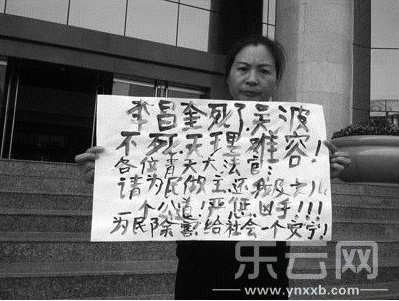 李昌奎死了吴波
不死天理难容!
各位青天大法官:
请为民做主还我及女儿
一个公道!严惩凶手!!!
为民除害给社会一个安宁!
乐云网
www.ynxxb.com